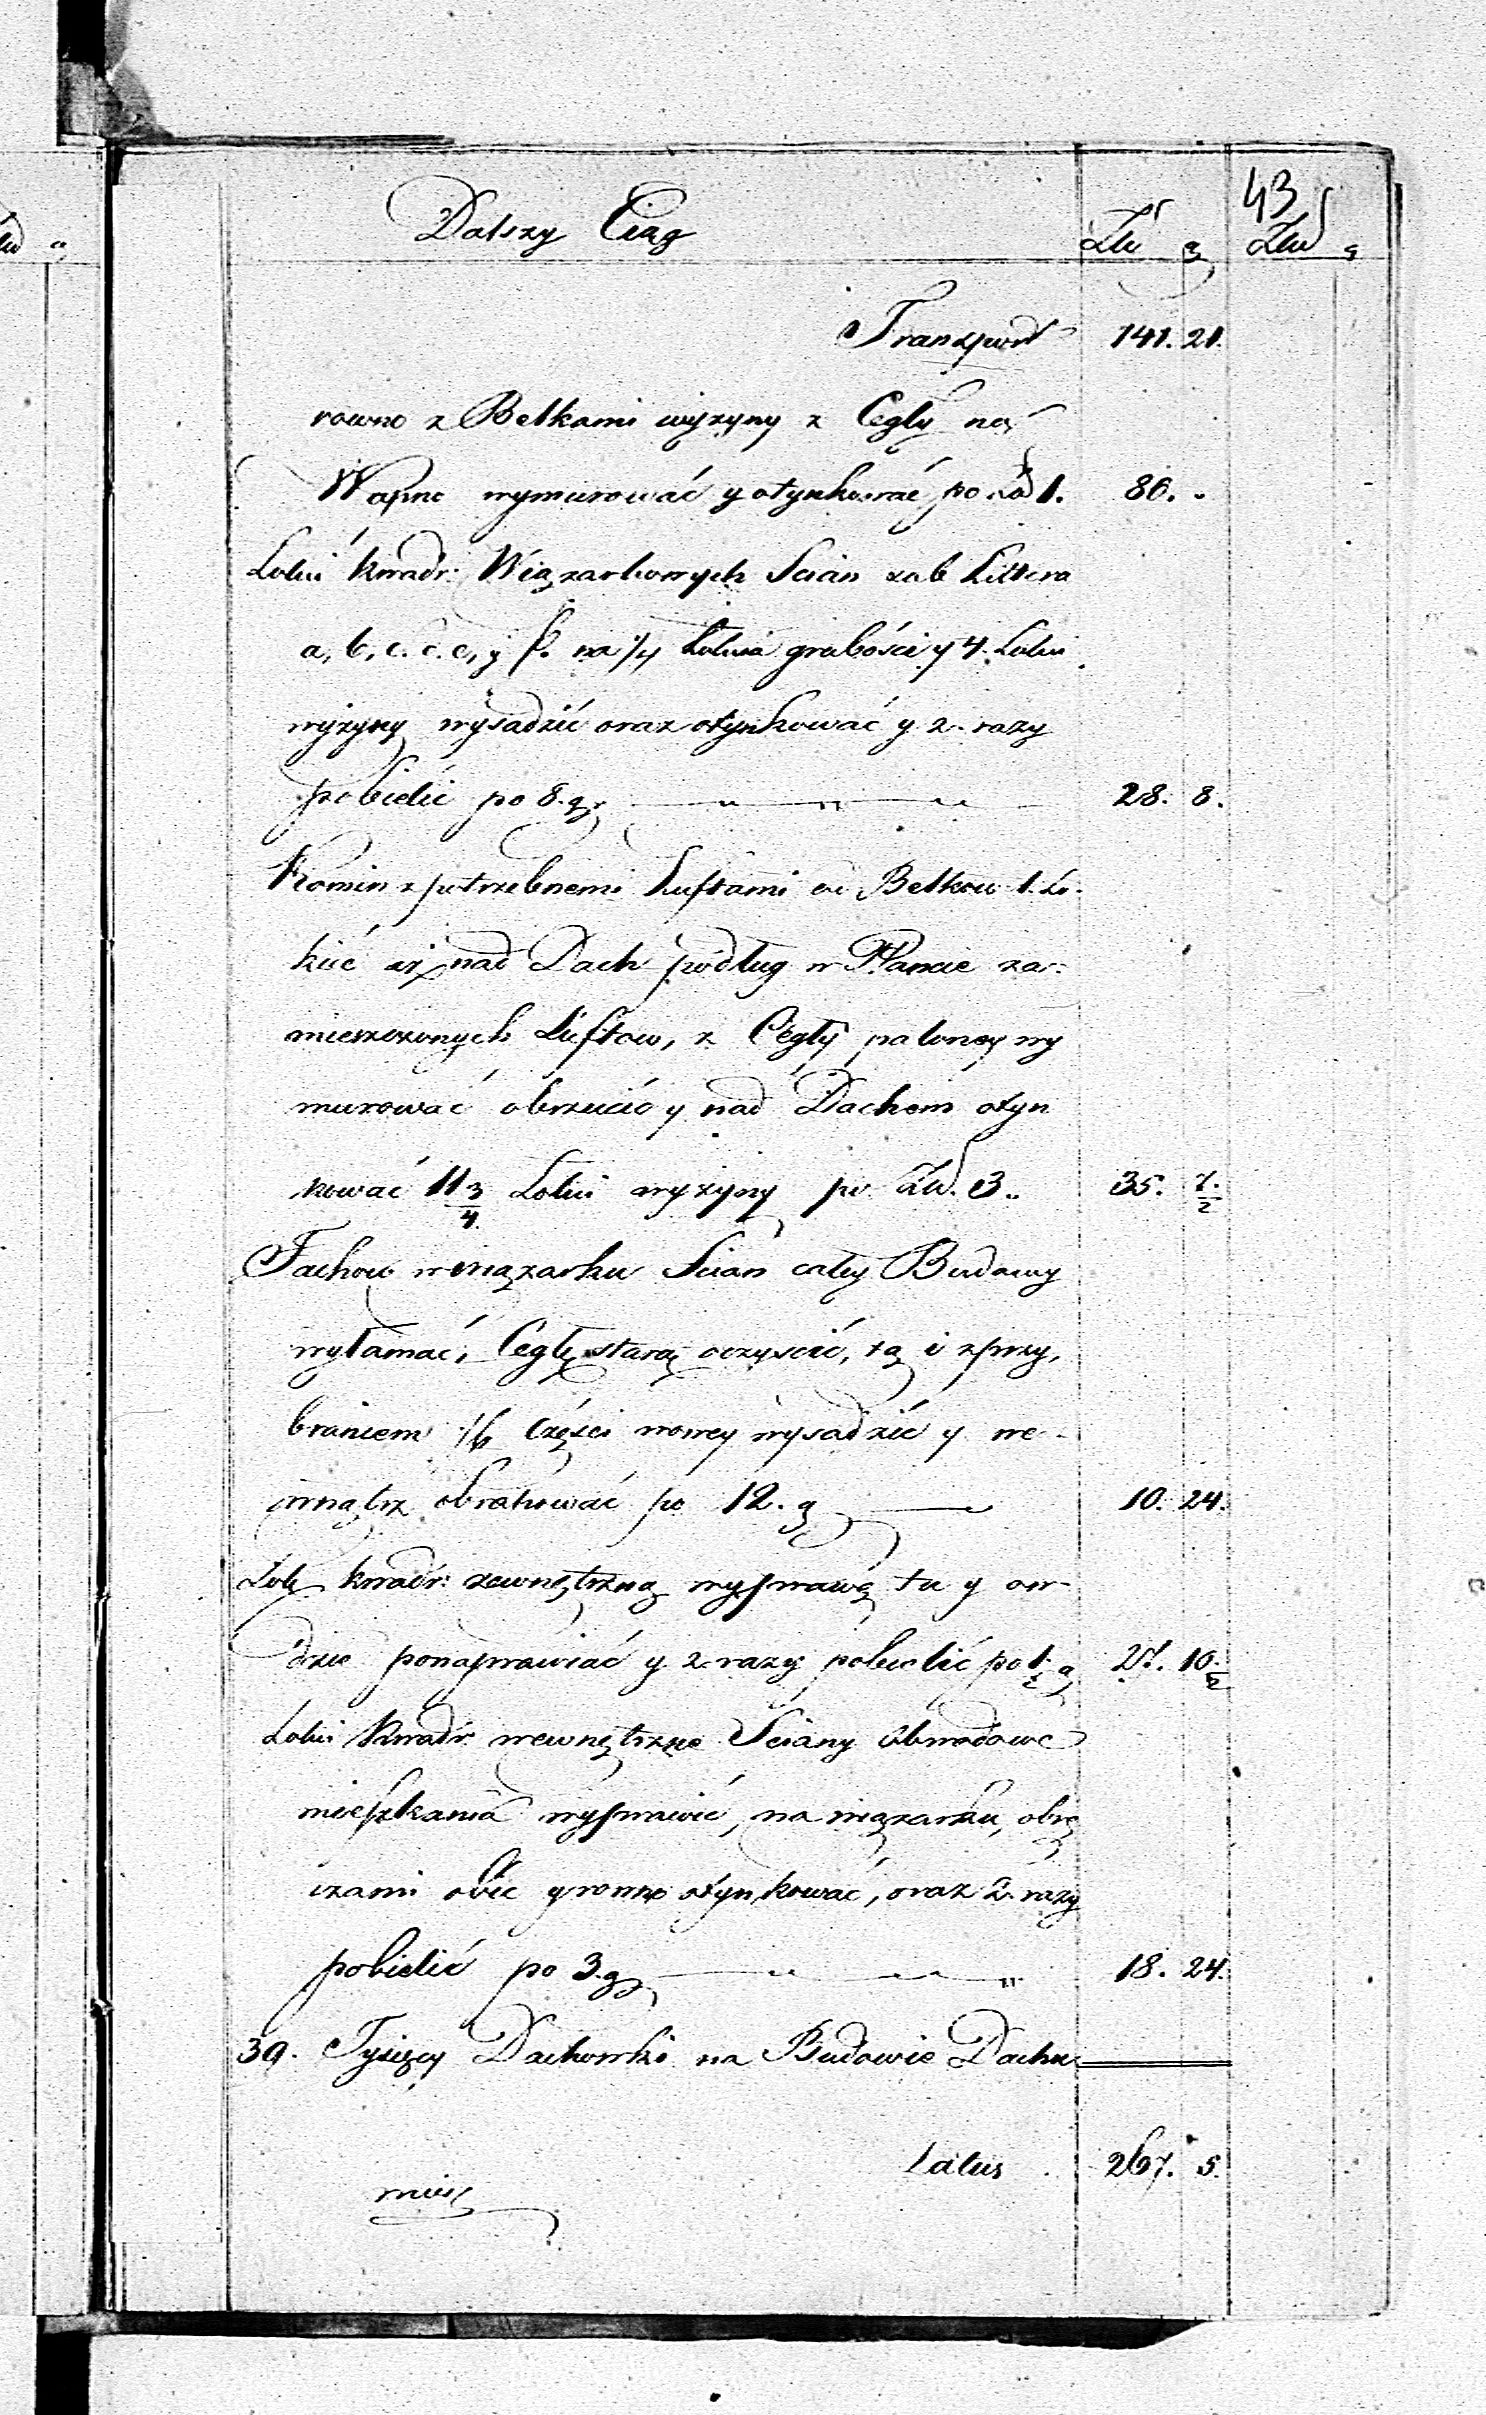 43
Dalszy Ciąg Zł g Zł g
Transport 141. 21.
rowno z Belkami wyzyny z Cegły na
Wapno wymurować y otynkować po Zł 1. 80. „
Łokci kwadr: Wiązarkowych Scian sub Littera
a, b, c. e, y f. na 1/4 Łokcia grubości y 4. Łokci
wyzyny wysadzić oraz otynkować y 2. razy
pobielić po 8. g 28. 8.
Komin z potrzebnemi Luftami od Belkow 1. Ło-
kieć aż nad Dach podług w Planie za-
mieszczonych Luftow, z Cegły paloney wy
murować obrzucić y nad Dachem otyn
kować 11 3/4 Łokci wyzyny po Zł. 3. 35. 7 1/2
Fachow w wiązarku Scian całey Budowy
wyłamać, Cegłę starą oczyscić, tą i z przy,
braniem 1/6 Części nowey wysadzić y we-
wnątrz obrapować po 12. g 10. 24.
Łok. kwadr: zewnętrzną wyprawę tu y ow-
dzie ponaprawiać y 2 razy pobielić po 1 1/2 g 27. 10 1/2
Łokci Kwadr: wewnętrzne Sciany Obwodowe
mieszkania wyprawić, na wiązarku, obrę
czami obić y rowno otynkować, oraz 2. razy
pobielić po 3. g 18. 24.
39. Tysięcy Dachowki na Budowie Dachu
Latus 267. 5.